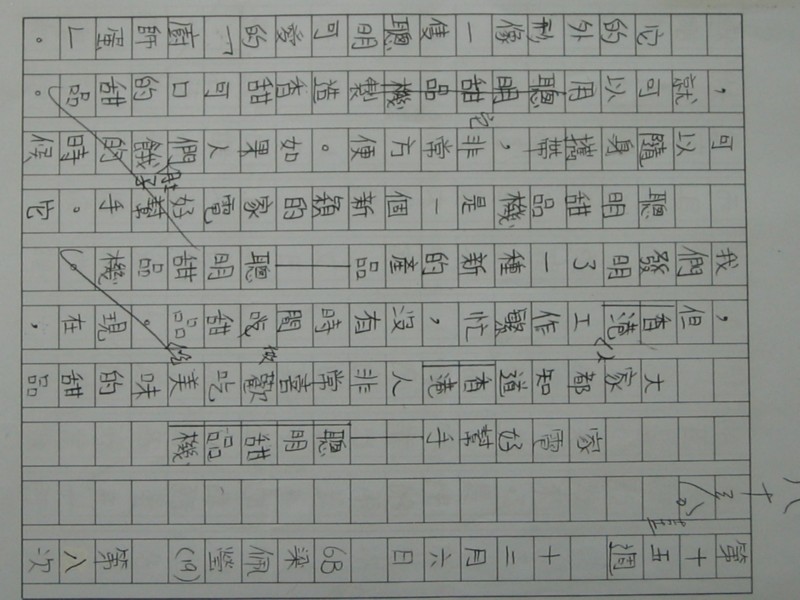 第十五週 十二月六日 6B 梁佩瑩 (19) 第八次
家電好幫手——聰明甜品機
大家都知道香港人非常喜歡吃美味的甜品
，但香港人工作繁忙，沒有時間做甜品。現在，
我們發明了一種新的產品——聰明甜品機。
聰明甜品機是一個新穎的家電好幫手。它
可以隨身攜帶，非常方便。如果人們肚子餓的時候
，就可以用它製造香甜可口的甜品。
它的外形像一隻聰明可愛的「廚師」。